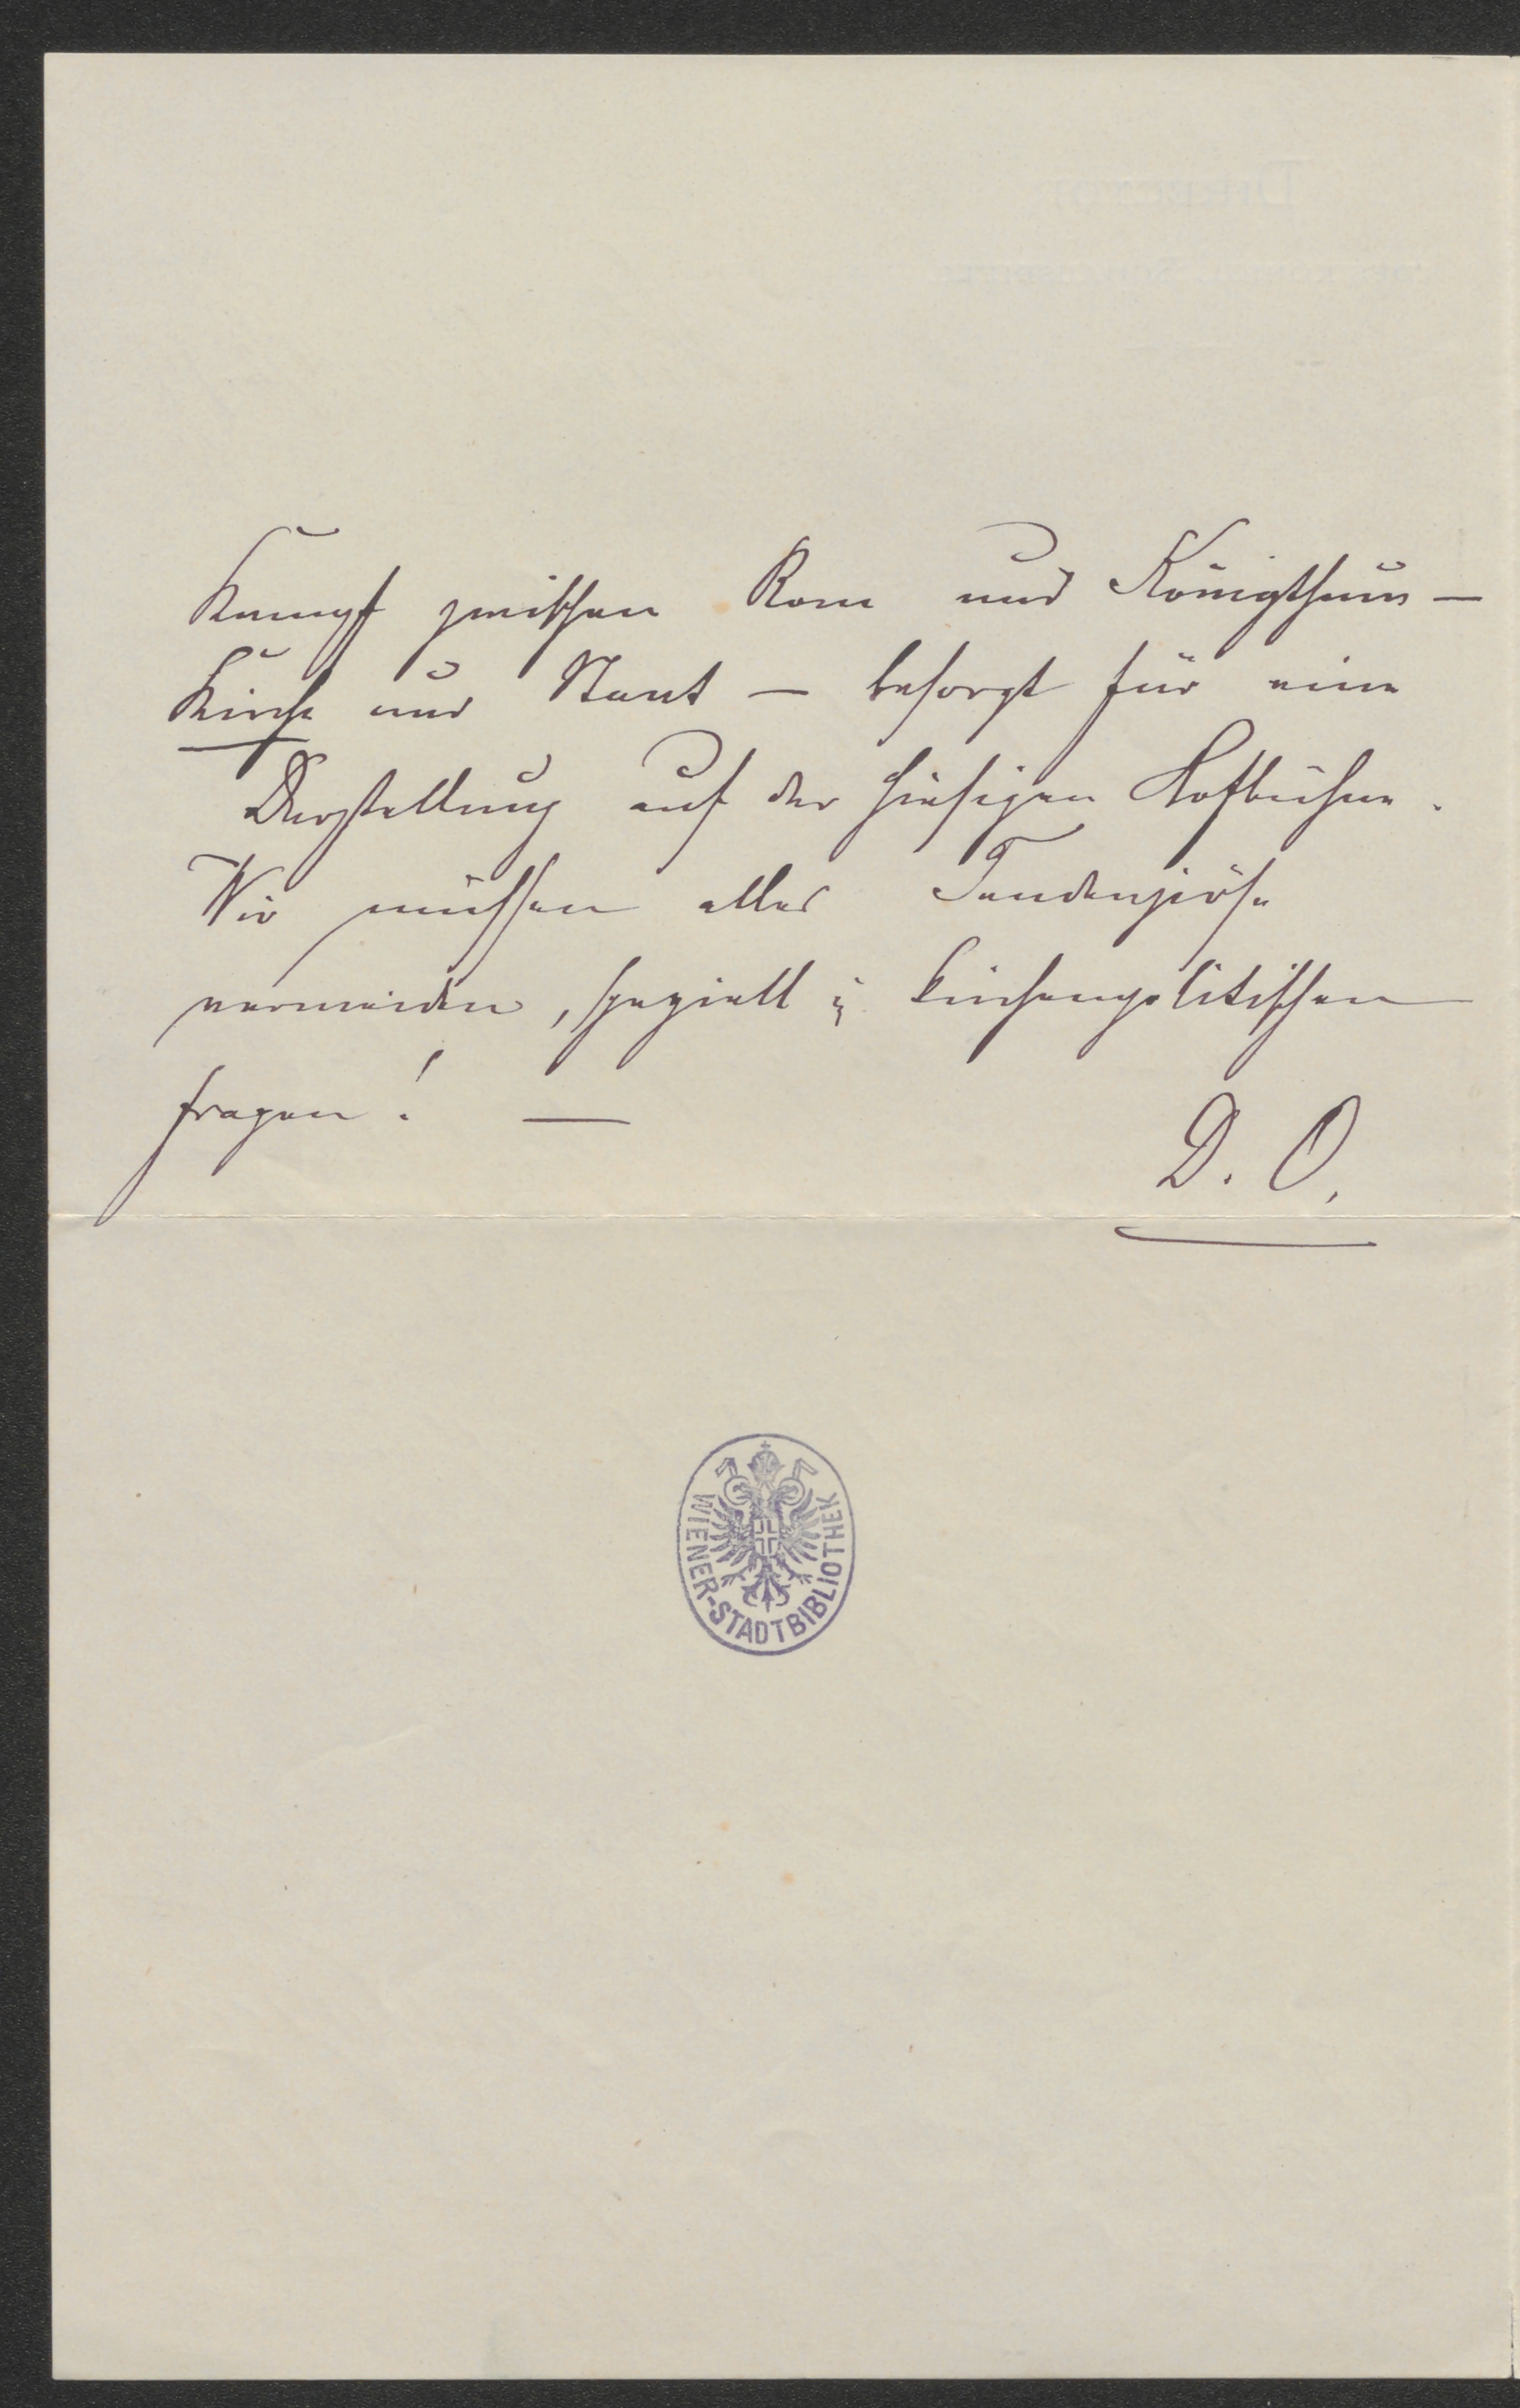 Kampf zwischen Rom und Königthum —
Kirche und Staat — besorgt für eine
Darstellung auf der hiesigen Hofbühne.
Wir müssen alles Tendenziöse
vermeiden, speziell in kirchenpolitischen
fragen! —
D. O.
WIENER-STADTBIBLIOTHEK